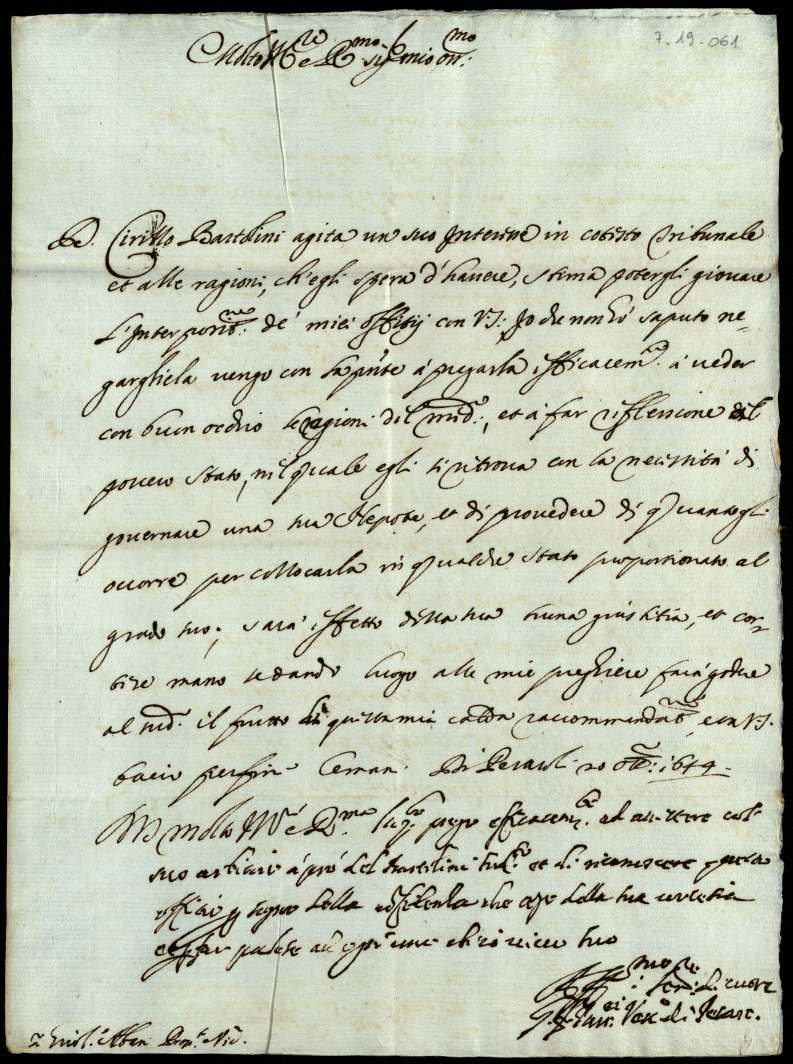 7-19-061
Molto Ill.re e R.mo Sig.r mio oss.mo
D. Cirillo Bartolini agita un suo Interesse in cotesto Tribunale
et alle ragioni, ch'egli spera d'havere, stima potergli giovare
l'Interposit.ne de' miei offitij con V.S.: Io che non hò saputo ne-
gargliela vengo con la pñte à pregarla efficacem.te à veder
con buon occhio le ragioni del med.o, et à far riflessione al
povero stato, nel quale egli si ritrova con la necessità di
governare una sua Nepote, et di provedere di quanto gli
occorre per collocarla in qualche stato proportionato al
grado suo; sarà effetto della sua buona giustitia, et cor-
tese mano se dando luogo alle mie preghiere farà godere
al med.o il frutto di questa mia calda raccommandat.ne, e con V.S.
bacio per fine le man. Di Pesaro li 20 ott.e: 1644
Di V.S. molto Ill.re e R.ma la q.le prego efficacem.te ad assistere col
suo à prò del Bartolini sud.o et di riconoscere questo
p segno della confidenza che ho della sua cortesia
suo
Aff.mo Ser.re di cuore
Vesc.o di Pesaro.